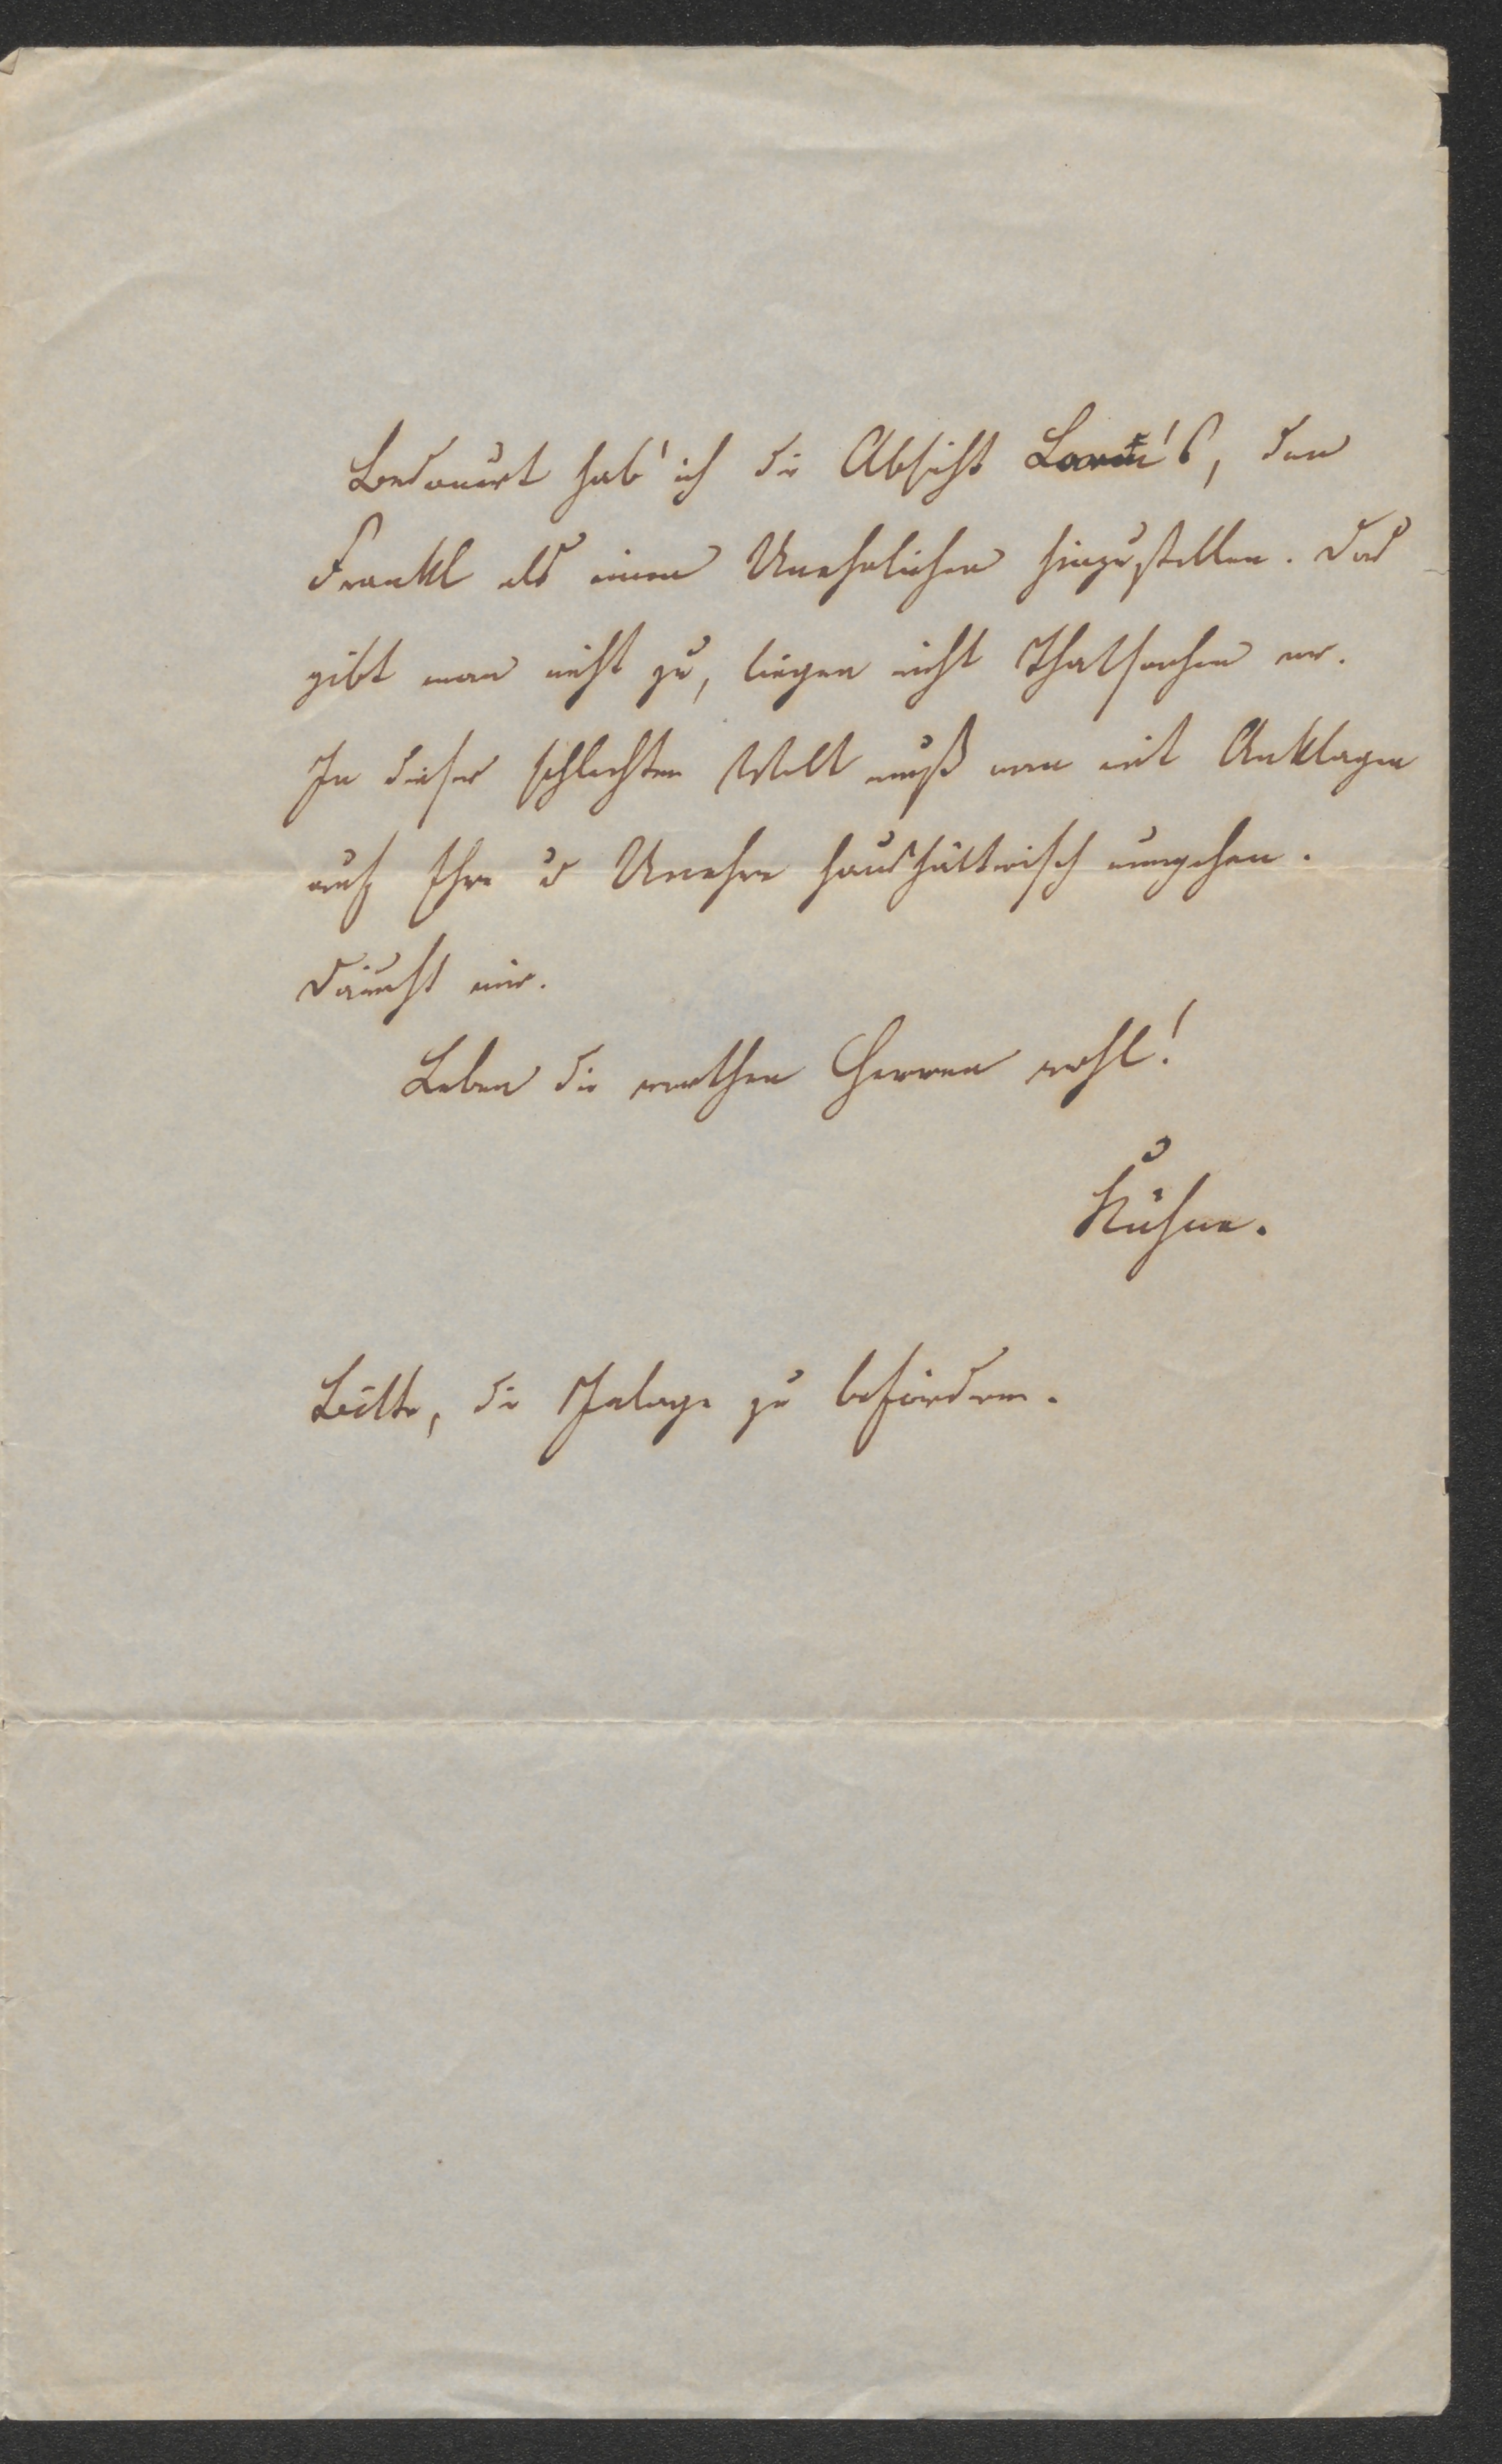 Bedauert hab' ich die Absicht Lorm's, den
Frankl als einen Unehrlichen hinzustellen. Das
gibt man nicht zu, liegen nicht Thatsachen vor.
In dieser schlechten Welt muß man mit Anklagen
auf Ehre u Unehre haushälterisch umgehen.
Däucht mir.
Leben die werthen Herren wohl!
Kühne.
Bitte, die Inlage zu befördern.